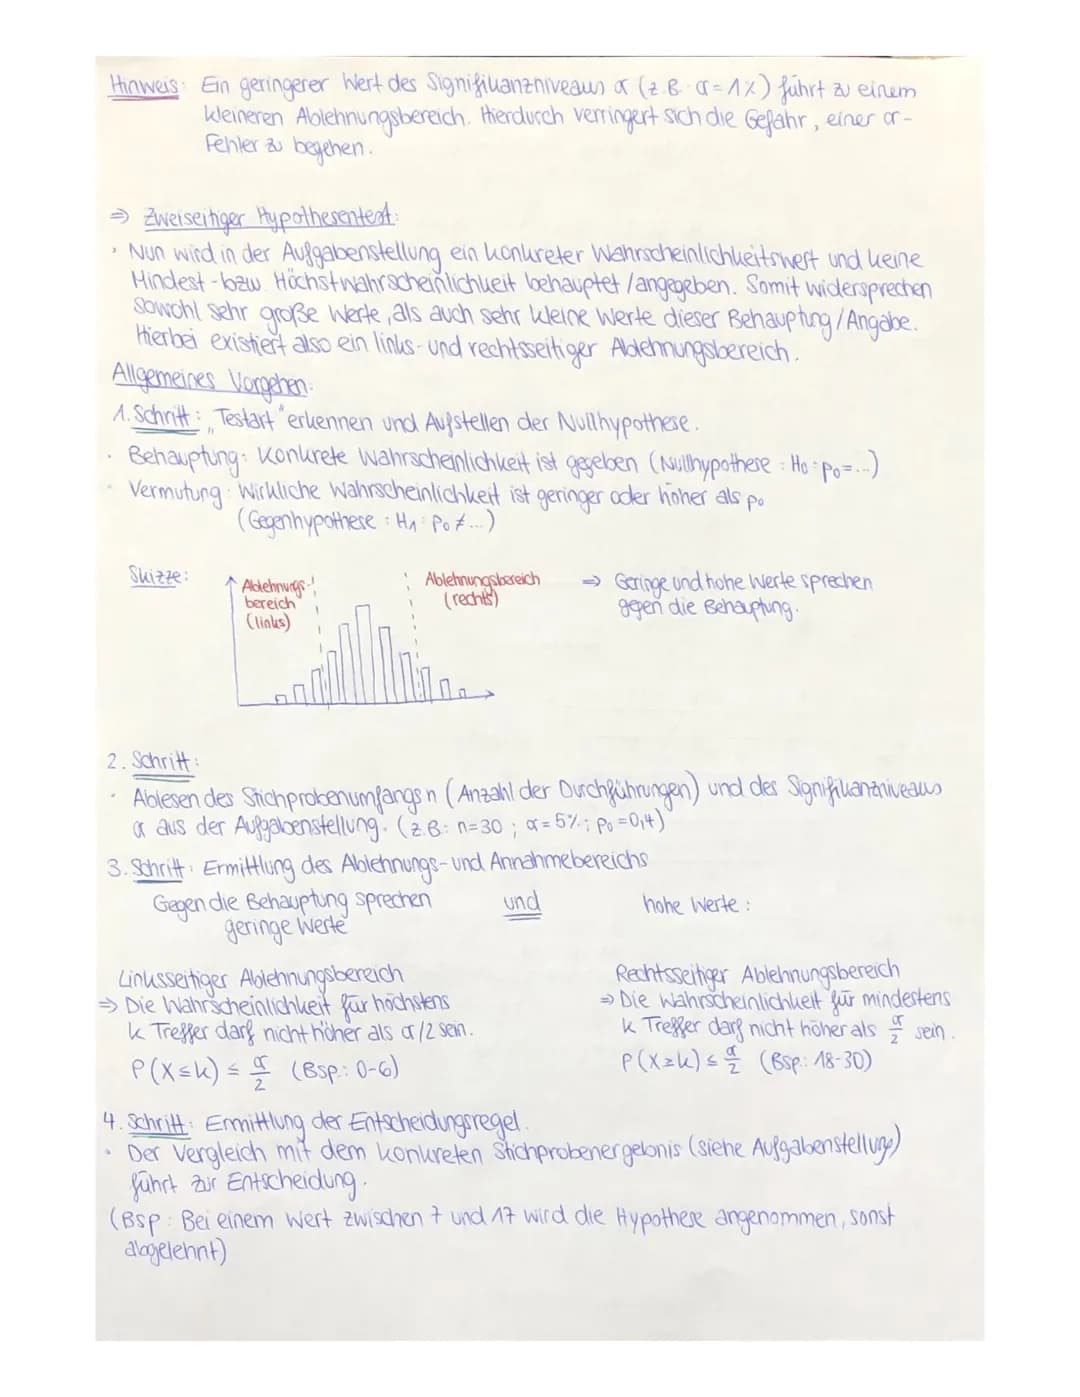 Hinweis: Ein geringerer Wert des Signifikanzniveaus α (z.B. α=1%) führt zu einem
kleineren Ablehnungsbereich. Hierdurch verringert sich die Gefahr, einer α-
Fehler zu begehen.
⇒ Zweiseitiger Hypothesentest:
• Nun wird in der Aufgabenstellung ein konkreter Wahrscheinlichkeitswert und keine
Mindest- bzw. Höchstwahrscheinlichkeit behauptet/angegeben. Somit widersprechen
sowohl sehr große Werte, als auch sehr kleine Werte dieser Behauptung/Angabe.
Hierbei existiert also ein links- und rechtsseitiger Ablehnungsbereich.
Allgemeines Vorgehen:
1. Schritt: „Testart" erkennen und Aufstellen der Nullhypothese.
• Behauptung: Konkrete Wahrscheinlichkeit ist gegeben (Nullhypothese: H₀: p₀=...)
• Vermutung: Wirkliche Wahrscheinlichkeit ist geringer oder höher als p₀
(Gegenhypothese: H₁: p₀≠...)
Skizze:
Ablehnungs-
bereich
(links)
Ablehnungsbereich
(rechts)
⇒ Geringe und hohe Werte sprechen
gegen die Behauptung.
2. Schritt:
• Ablesen des Stichprobenumfangs n (Anzahl der Durchführungen) und des Signifikanzniveaus
α aus der Aufgabenstellung. (z.B: n=30; α=5%; p₀=0,4)
3. Schritt: Ermittlung des Ablehnungs- und Annahmebereichs
Gegen die Behauptung sprechen und hohe Werte:
geringe Werte
Linksseitiger Ablehnungsbereich
⇒ Die Wahrscheinlichkeit für höchstens
k Treffer darf nicht höher als α/2 sein.
P(X≤k) ≤ α/2 (Bsp.: 0-6)
Rechtsseitiger Ablehnungsbereich
⇒ Die Wahrscheinlichkeit für mindestens
k Treffer darf nicht höher als α/2 sein.
P(X≥k) ≤ α/2 (Bsp.: 18-30)
4. Schritt: Ermittlung der Entscheidungsregel.
• Der Vergleich mit dem konkreten Stichprobenergebnis (siehe Aufgabenstellung)
führt zur Entscheidung.
(Bsp: Bei einem Wert zwischen 7 und 17 wird die Hypothese angenommen, sonst
abgelehnt)